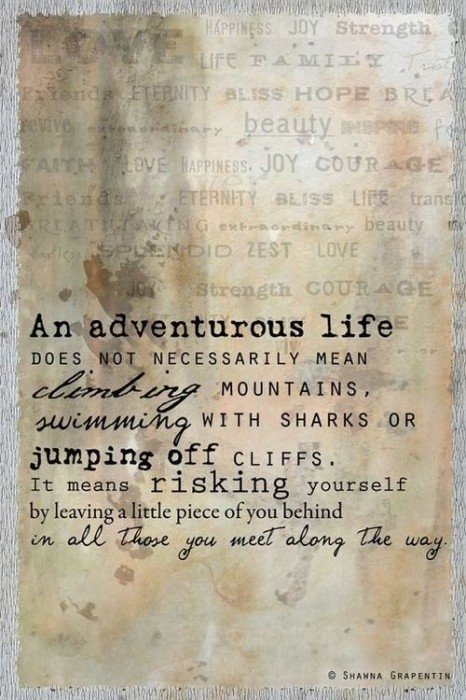 HAPPINESS JOY Strength
LOVE
LIFE FAMILY Trust
Friends ETERNITY BLISS HOPE BREA
revive extraordinary beauty INSPIRE
FAITH LOVE HAPPINESS JOY COURAGE
Friends ETERNITY BLISS LIFE trans
BREATHTAKING extraordinary beauty
endless SPLENDID ZEST LOVE
JOY Strength COURAGE
An adventurous life
DOES NOT NECESSARILY MEAN
climbing MOUNTAINS,
swimming WITH SHARKS OR
jumping off CLIFFS.
It means risking yourself
by leaving a little piece of you behind
in all those you meet along the way.
© SHAWNA GRAPENTIN